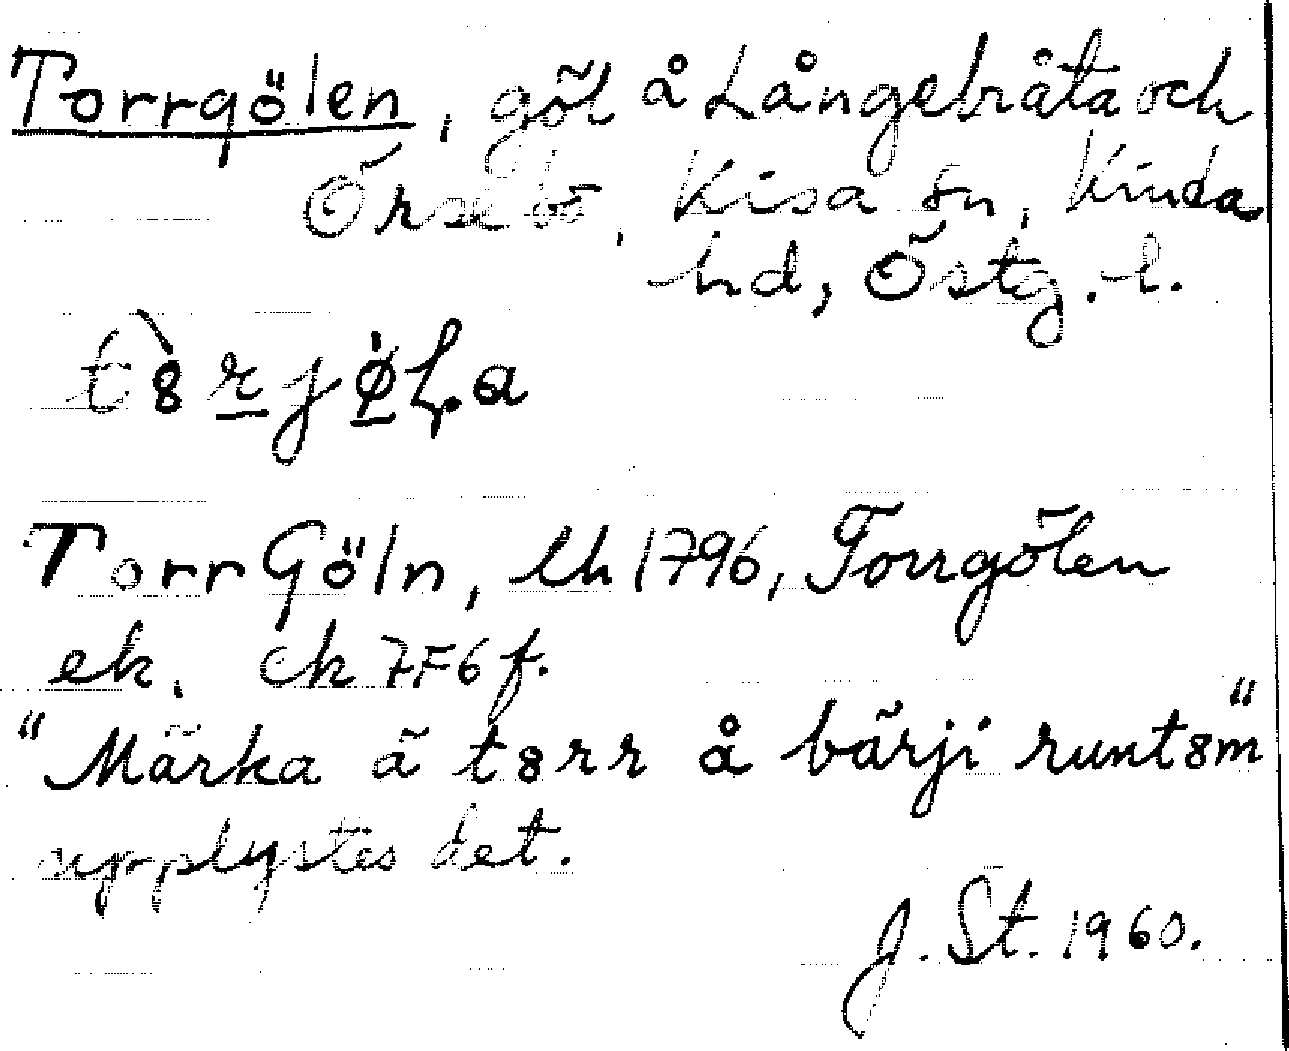 Torrgölen, göl å Långebråta och
Örsebö, Kisa sn, Kinda
hd, Östg. l.
t8̀rjø̀l.a
Torr Göln, lh 1796, Torrgölen
ek. ck 7F6f.
"Märka ä t8rr å bärji runt8m"
upplystes det.
J. St. 1960.